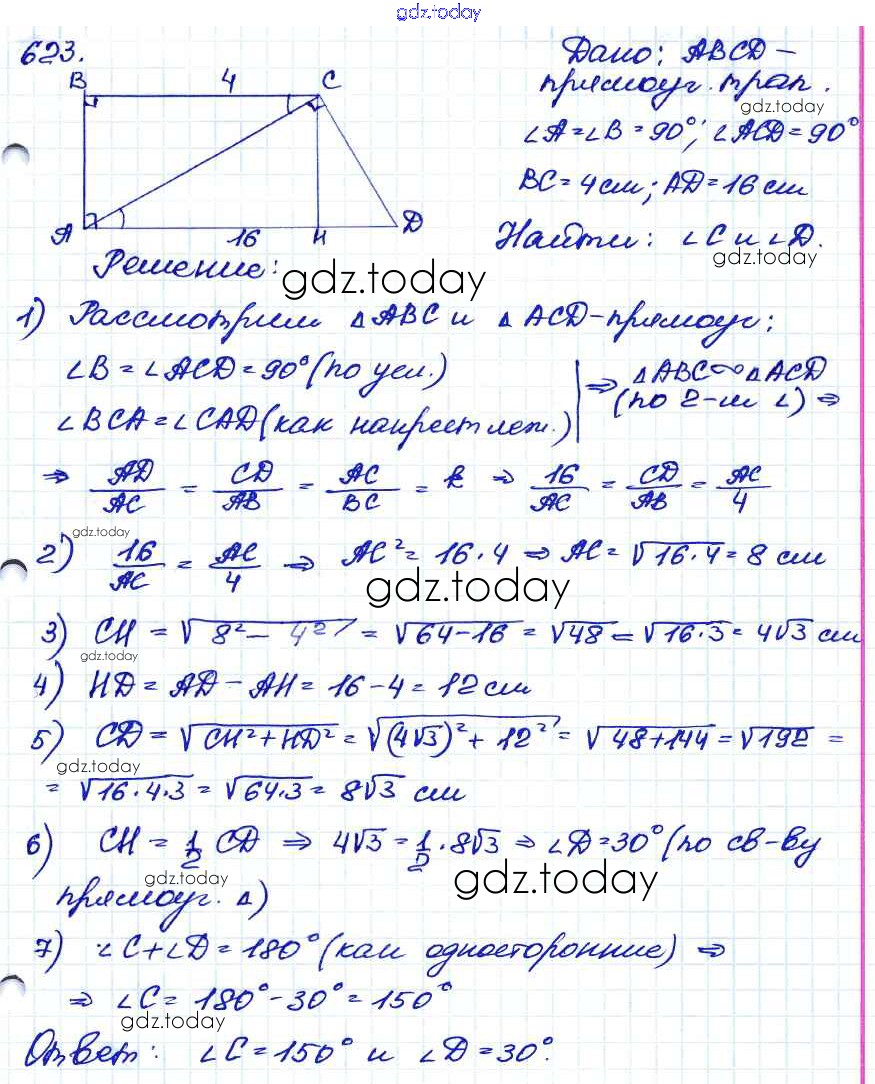 gdz.today
623.
B 4 C
A 16 H D
Дано: ABCD –
прямоуг. трап.
gdz.today
∠A = ∠B = 90°; ∠ACD = 90°
BC = 4 см; AD = 16 см
Найти: ∠C и ∠D.
Решение:
gdz.today
1) Рассмотрим △ABC и △ACD – прямоуг;
∠B = ∠ACD = 90° (по усл.)
∠BCA = ∠CAD (как накрест леж.)
⇒ △ABC ∞ △ACD
(по 2-м ∠) ⇒
⇒ AD/AC = CD/AB = AC/BC = k ⇒ 16/AC = CD/AB = AC/4
gdz.today
2) 16/AC = AC/4 ⇒ AC² = 16·4 ⇒ AC = √16·4 = 8 см
gdz.today
3) CH = √8² – 4² = √64–16 = √48 = √16·3 = 4√3 см
gdz.today
4) HD = AD – AH = 16 – 4 = 12 см
5) CD = √CH²+HD² = √(4√3)² + 12² = √48+144 = √192 =
gdz.today
= √16·4·3 = √64·3 = 8√3 см
6) CH = 1/2 CD ⇒ 4√3 = 1/2 · 8√3 ⇒ ∠D = 30° (по св-ву
gdz.today
gdz.today
прямоуг. △)
7) ∠C + ∠D = 180° (как односторонние) ⇒
⇒ ∠C = 180° – 30° = 150°
gdz.today
Ответ: ∠C = 150° и ∠D = 30°.